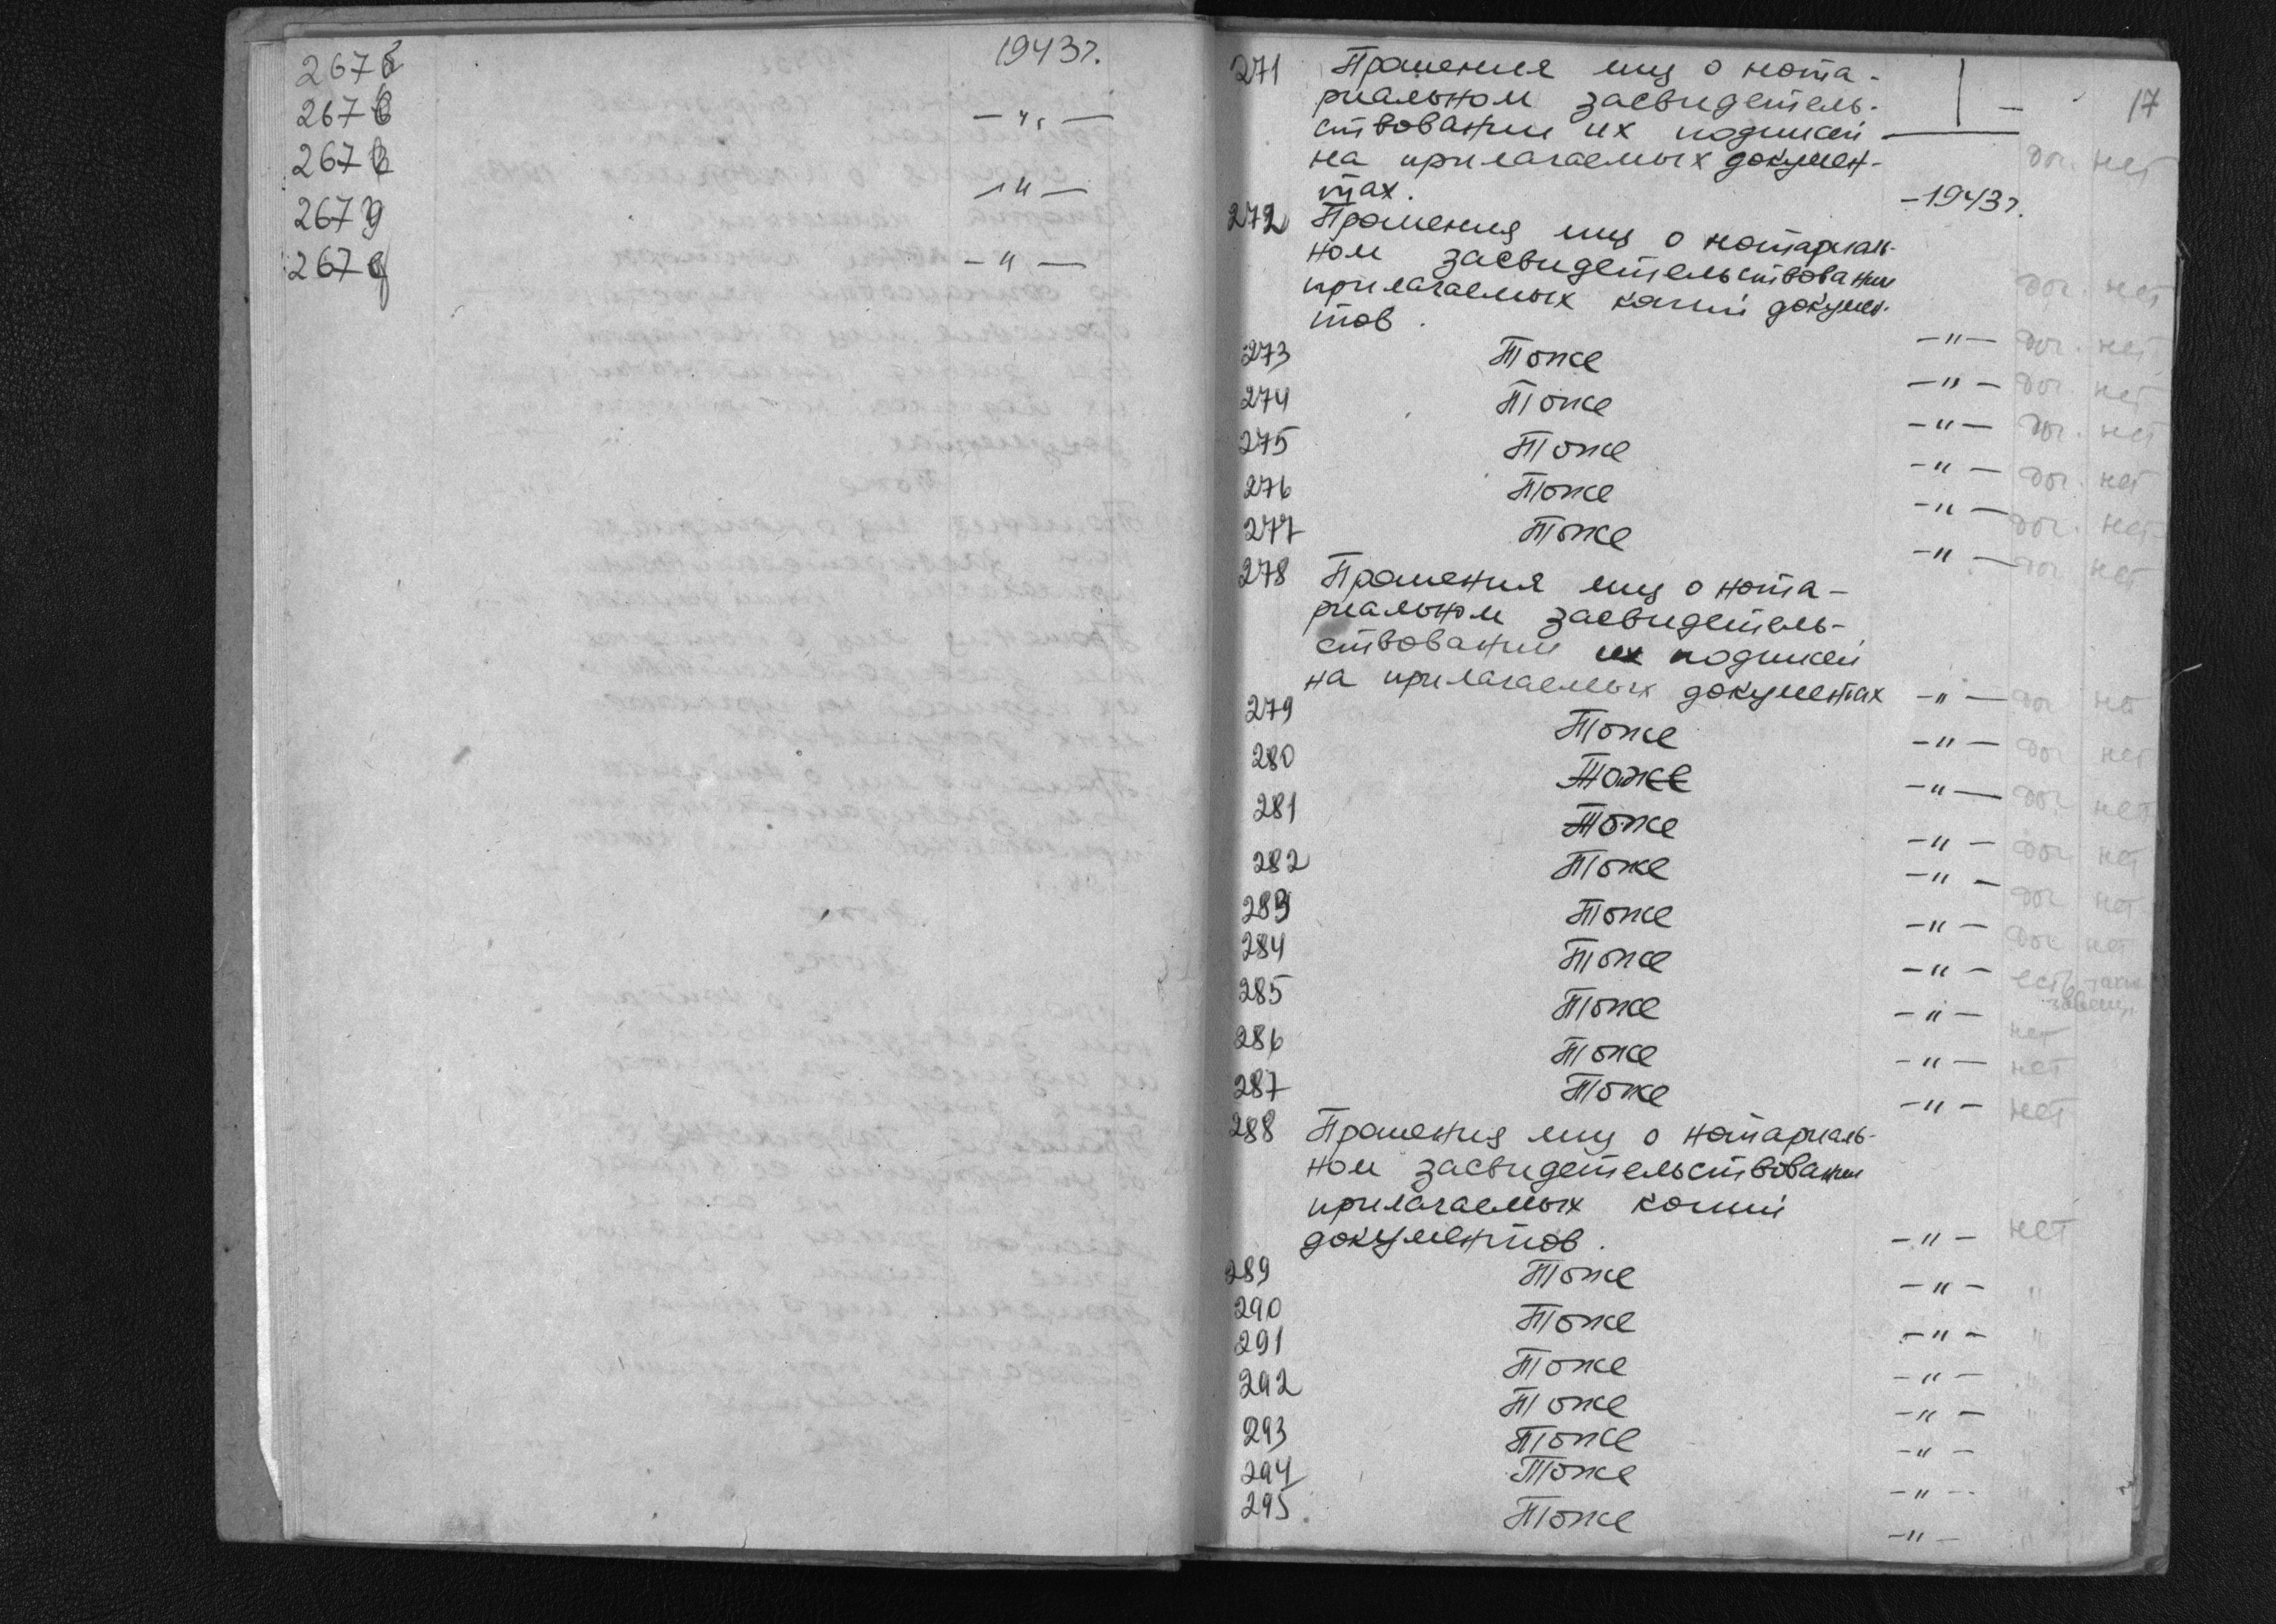 267б 1943г.
267в — „ —
267 — „ —
267д — „ —
267 — „ —
17
271 Прошения лиц о нота-
риальном засвидетель-
ствовании их подписей —
на прилагаемых докумен- дог. нет
тах. – 1943г.
272 Прошения лиц о нотариаль-
ном засвидетельствовании
прилагаемых копий докумен- дог. нет
тов. – „ – дог. нет
273 Тоже – „ – дог. нет
274 Тоже – „ – дог. нет
275 Тоже – „ – дог. нет
276 Тоже – „ – дог. нет
277 Тоже – „ – дог. нет
278 Прошения лиц о нота-
риальном засвидетель-
ствовании их подписей
на прилагаемых документах – „ – дог нет
279 Тоже – „ – дог нет
280 Тоже – „ – дог нет
281 Тоже – „ – дог нет
282 Тоже – „ – дог нет
283 Тоже – „ – дог нет
284 Тоже – „ – есть
завещ.
285 Тоже – „ – нет
286 Тоже – „ – нет
287 Тоже – „ – нет
288 Прошения лиц о нотариаль-
ном засвидетельствовании
прилагаемых копий
документов. – „ – нет
289 Тоже – „ – „
290 Тоже – „ – „
291 Тоже – „ – „
292 Тоже – „ – „
293 Тоже – „ –
294 Тоже – „ – „
295 Тоже – „ – „